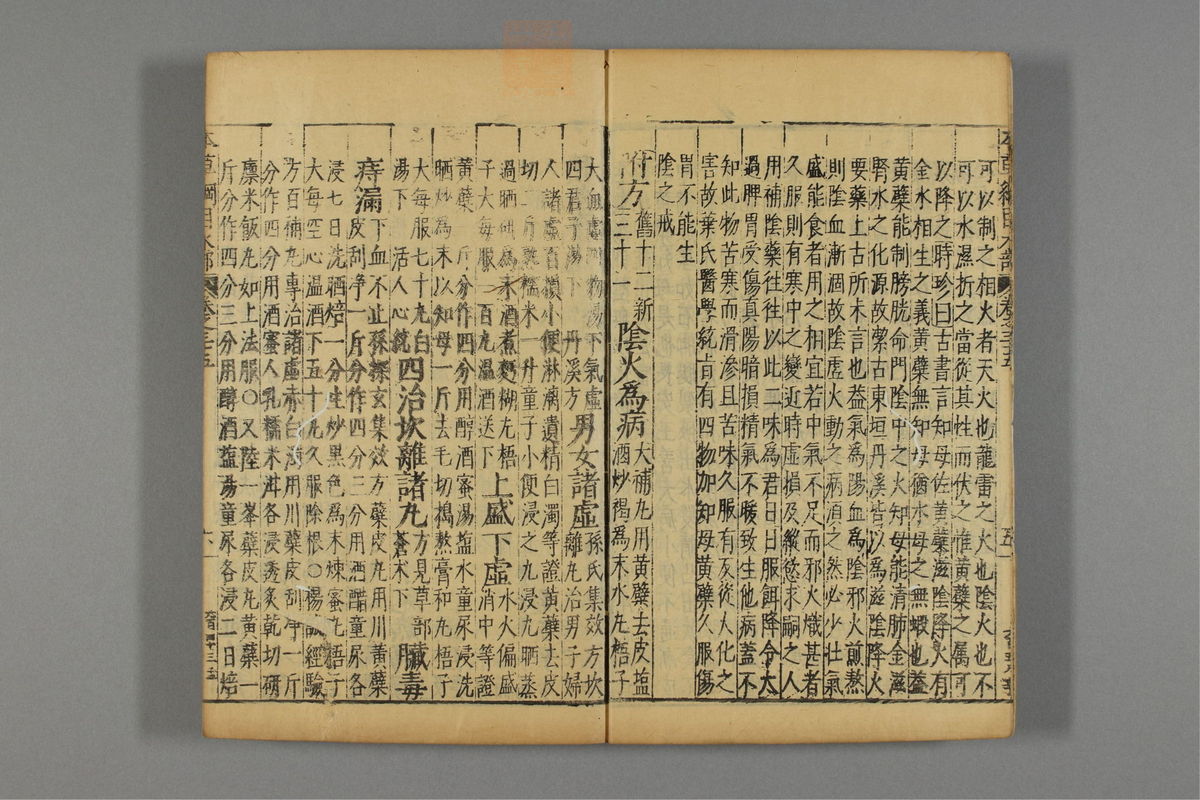 可以制之相火者天火也龍雷之火也陰火也不
可以水濕折之當從其性而伏之惟黃蘗之屬可
以降之時珍曰古書言知母佐黃蘗滋陰降火有
金水相生之義黃蘗無知母猶水母之無蝦也蓋
黃蘗能制膀胱命門陰中之火知母能清肺金滋
腎水之化源故潔古東垣丹溪皆以為滋陰降火
要藥上古所未言也蓋氣為陽血為陰邪火煎熬
則陰血漸涸故陰虛火動之病須之然必少壯氣
盛能食者用之相宜若中氣不足而邪火熾甚者
久服則有寒中之變近時虛損及縱慾求嗣之人
用補陰藥往往以此二味為君日日服餌降令太
過脾胃受傷真陽暗損精氣不暖致生他病蓋不
知此物苦寒而滑滲且苦味久服有反從火化之
害故葉氏醫學統旨有四物加知母黃蘗久服傷
胃不能生
陰之戒
附方舊十二新三十一陰火為病大補丸用黃蘗去皮鹽酒炒褐為末水丸梧子
大血虛四物湯下氣虛四君子湯下丹溪方男女諸虛孫氏集效方坎離丸治男子婦
人諸虛百損小便淋漓遺精白濁等證黃蘗去皮切二斤熟糯米一升童子小便浸之九浸九晒蒸
過晒研為末酒煮麪糊丸梧子大每服一百丸溫酒送下上盛下虛水火偏盛消中等證
黃蘗一斤分作四分用醇酒蜜湯鹽水童尿浸洗晒炒為末以知母一斤去毛切搗熬膏和丸梧子
大每服七十丸白湯下活人心統四治坎離諸丸方見草部蒼朮下臟毒
痔漏下血不止孫探玄集效方蘗皮丸用川黃蘗皮刮淨一斤分作四分三分用酒醋童尿各
浸七日洗晒焙一分生炒黑色為末煉蜜丸梧子大每空心溫酒下五十丸久服除根○楊誠經驗
方百補丸專治諸虛赤白濁用川蘗皮刮淨一斤分作四分用酒蜜人乳糯米泔各浸透炙乾切研
廩米飯丸如上法服○又陸一峯蘗皮丸黃蘗一斤分作四分三分用醇酒鹽湯童尿各浸二日焙